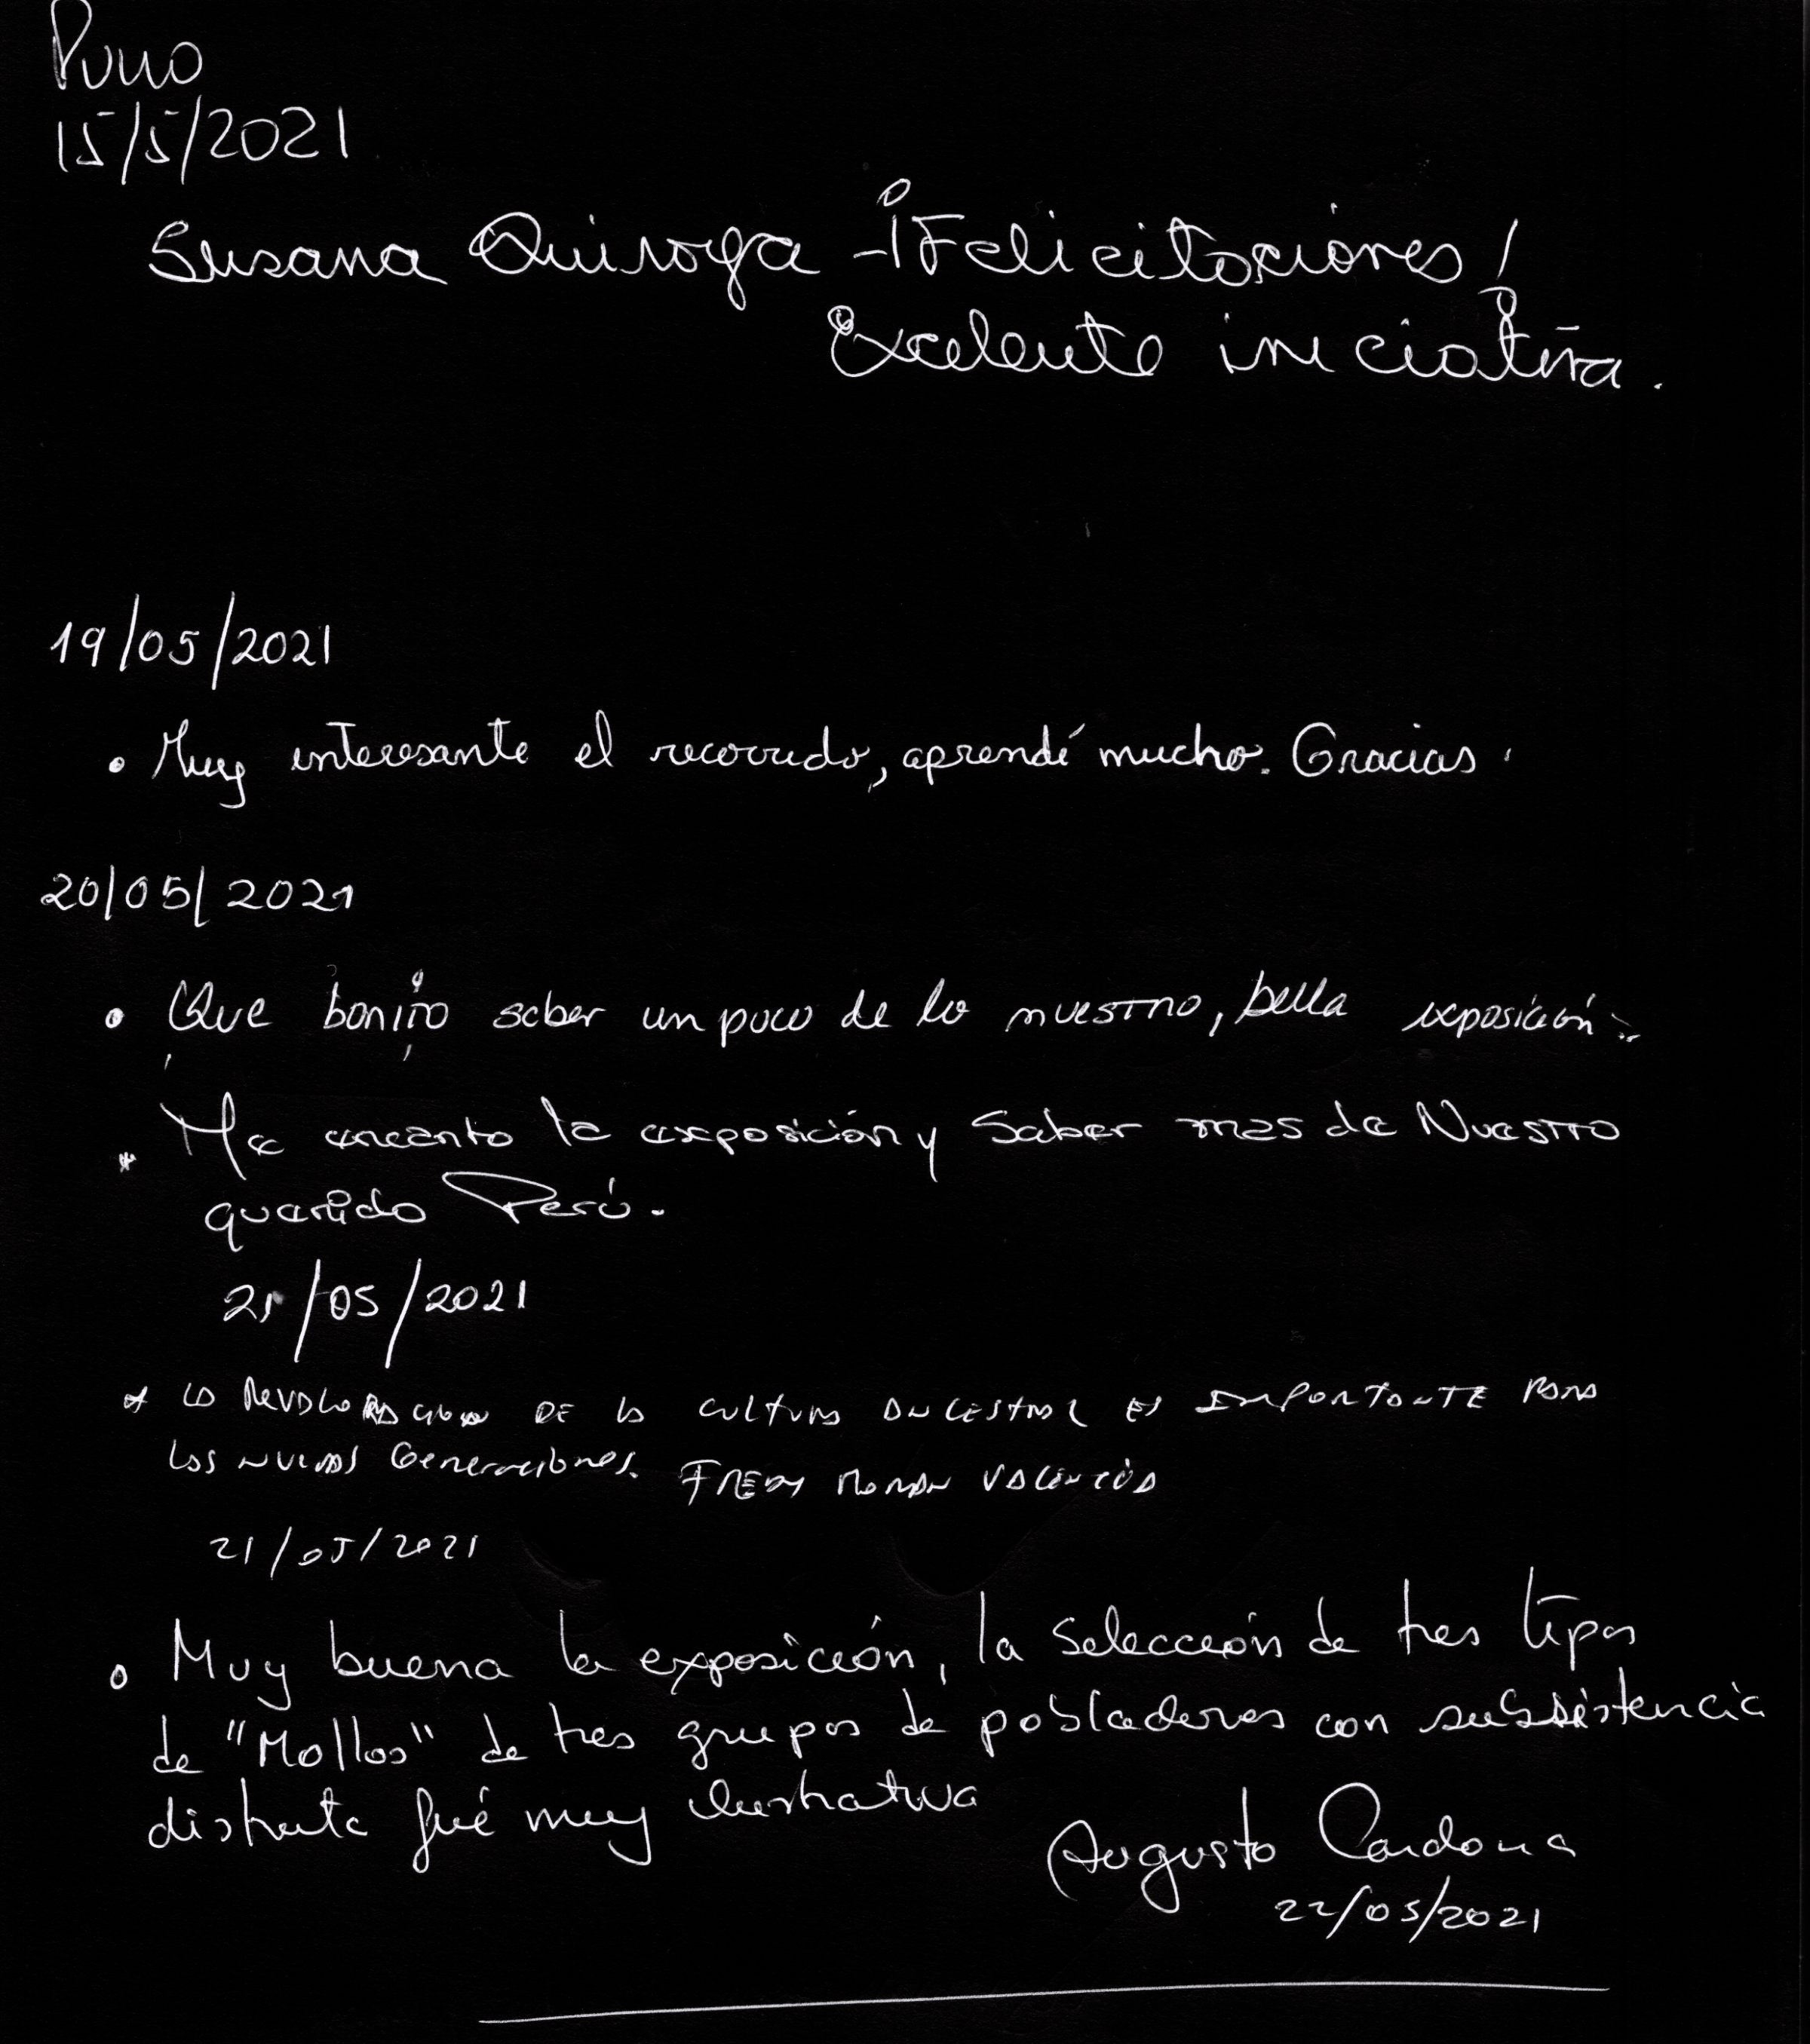 Puno
15/5/2021
Susana Quiroga - ¡Felicitaciones!
Excelente iniciativa.
19/05/2021
• Muy interesante el recorrido, aprendí mucho. Gracias.
20/05/2021
• Que bonito saber un poco de lo nuestro, bella exposición.
• Me encanto la exposición y Saber mas de Nuestro
querido Perú.
21/05/2021
* La revaloracion de la cultura ancestral es importante para
las nuevas Generaciones. Fredy Roman Valencia
21/05/2021
• Muy buena la exposición, la selección de tres tipos
de "Mollos" de tres grupos de pobladores con subsistencia
distinta fué muy ilustrativa
Augusto Cardona
22/05/2021